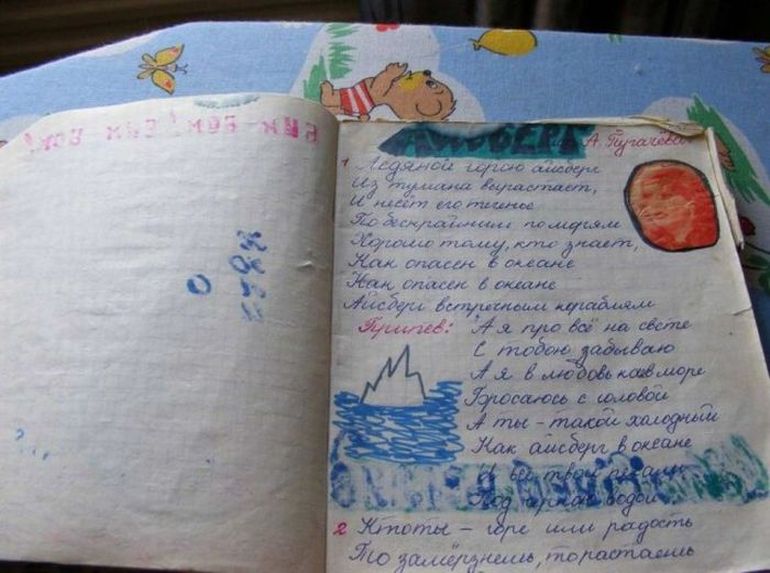 АЙСБЕРГ
А. Пугачёва
1 Ледяной горою айсберг
Из тумана вырастает,
И несёт его теченье
По бескрайним по морям
Хорошо тому, кто знает,
Как опасен в океане
Как опасен в океане
Айсберг встречным кораблям
Припев: А я про всё на свете
С тобою забываю
А я в любовь как в море
Бросаюсь с головой
А ты - такой холодный
Как айсберг в океане
И все твои печали
Под чёрною водой
2 Кто ты - горе или радость
То замёрзнешь, то растаешь